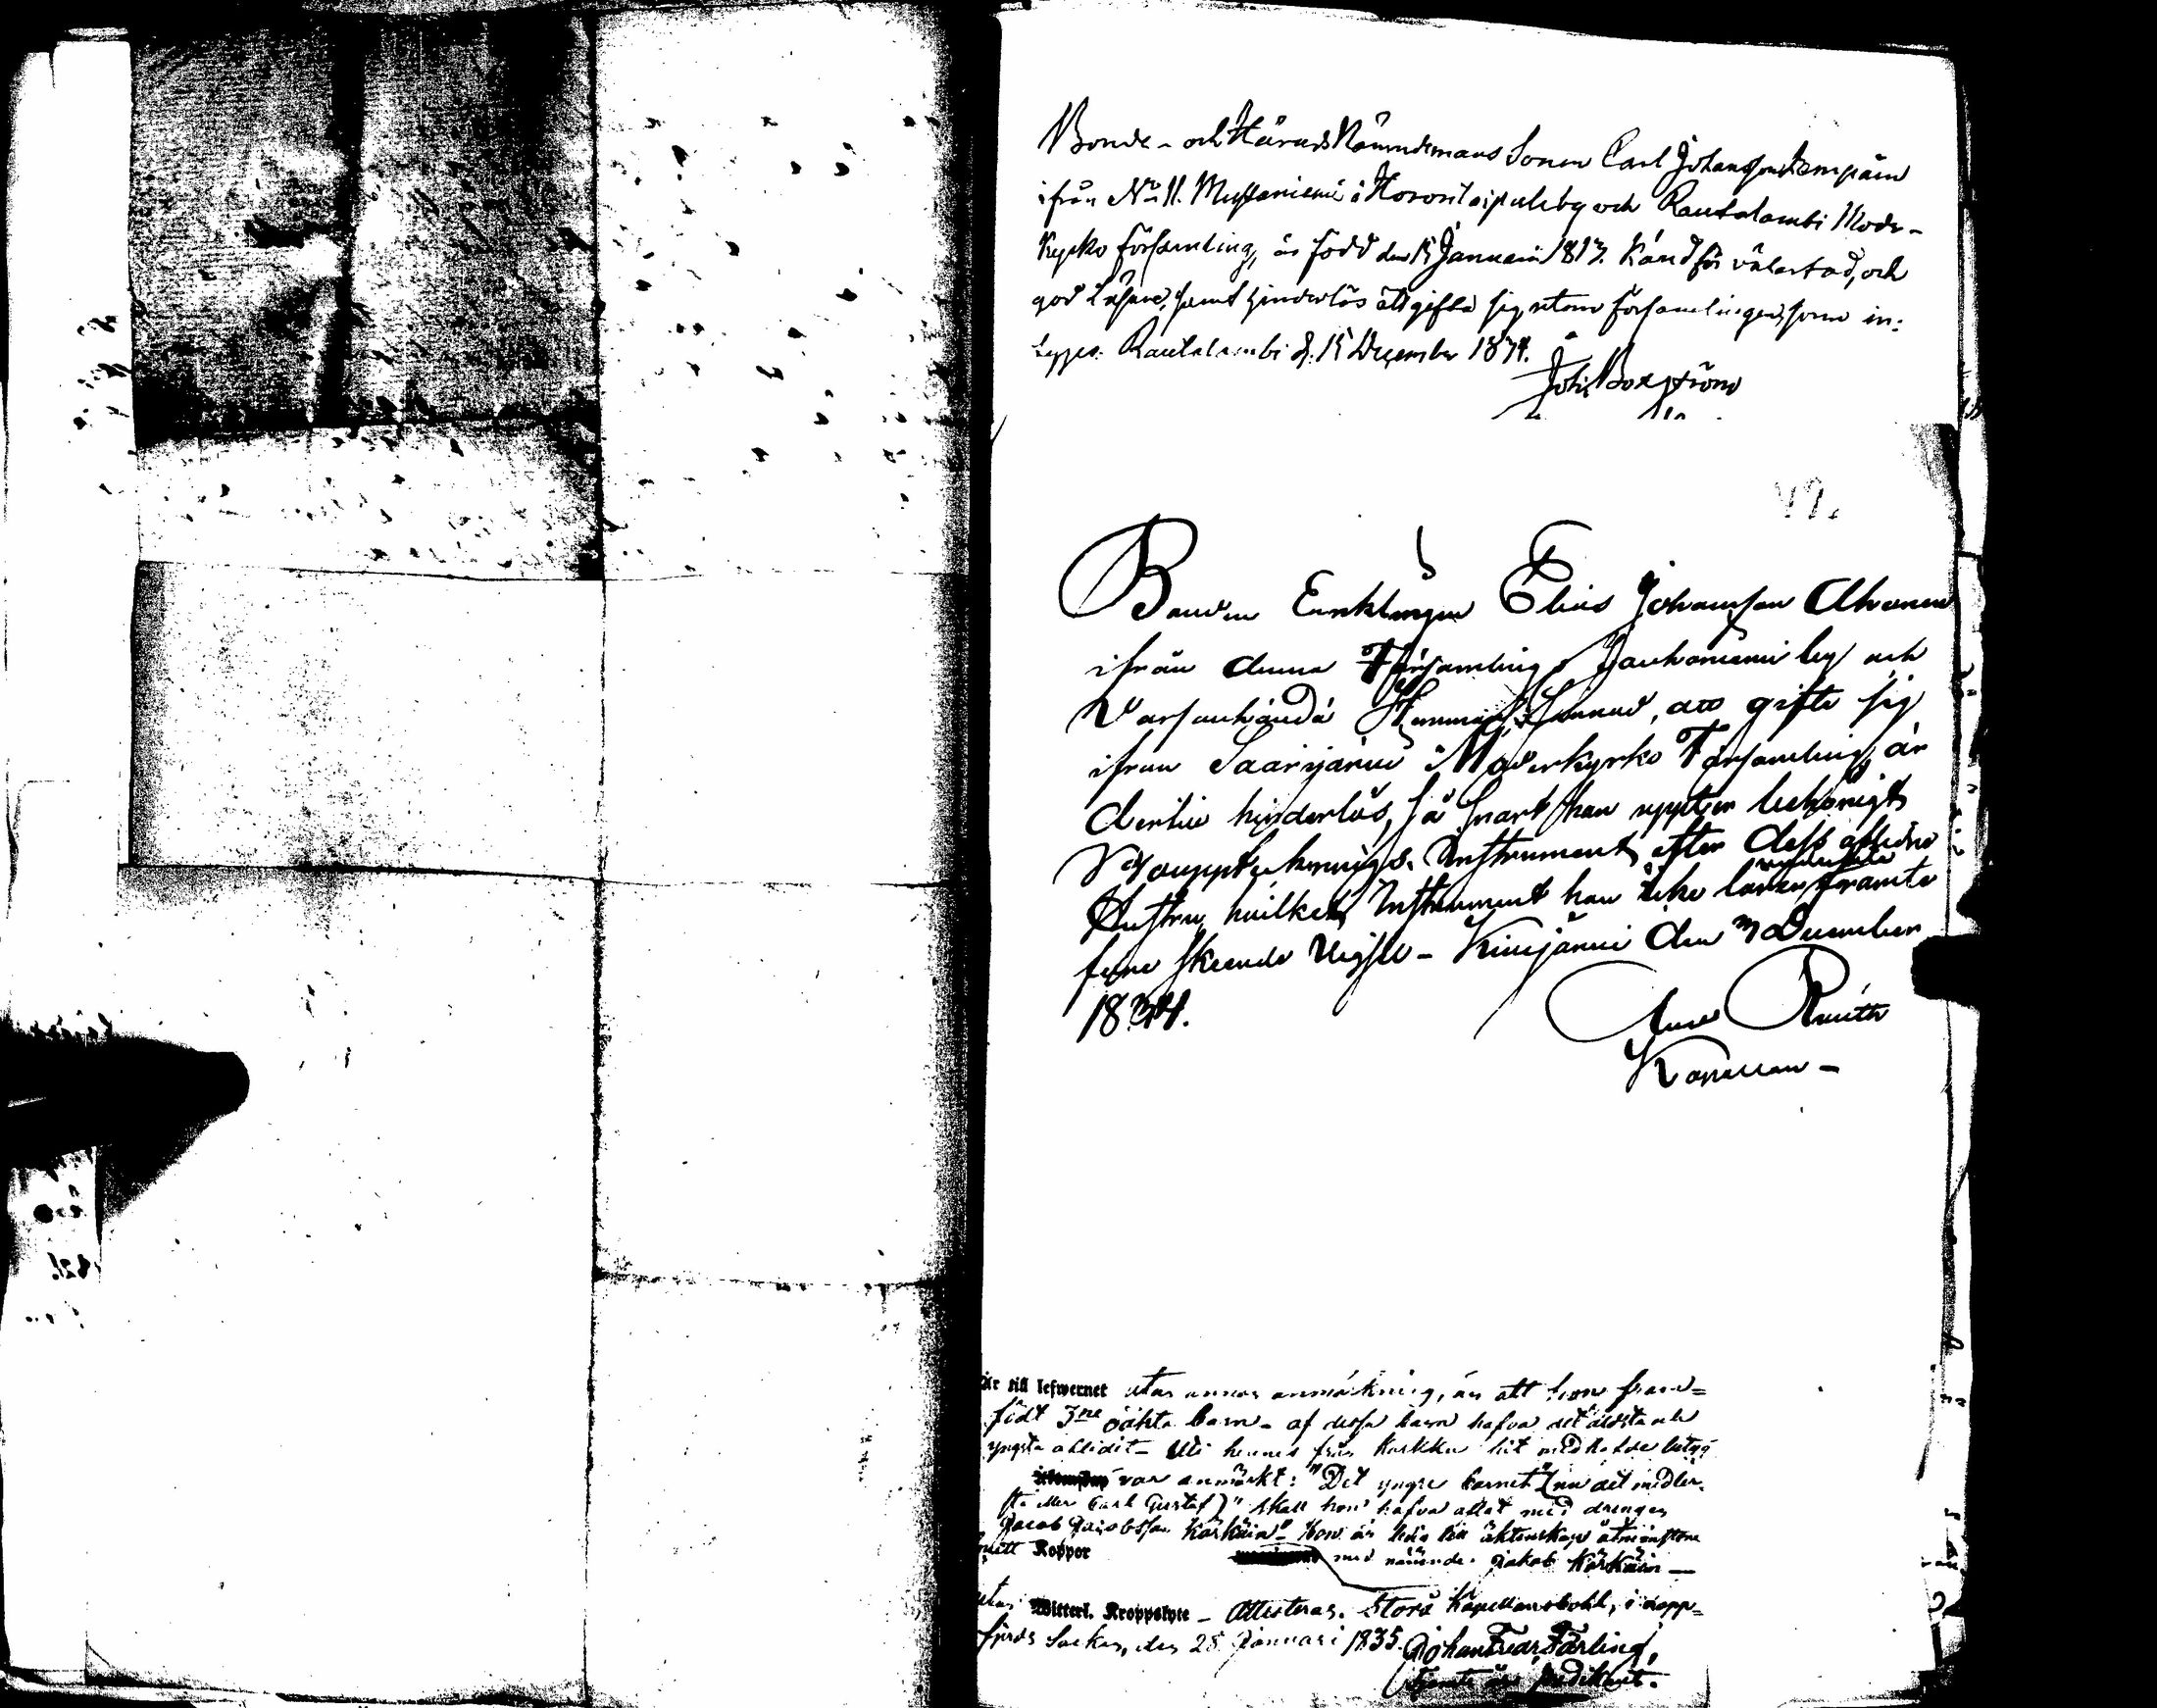 Bonde- och Härads Nämndemans Sonen Carl Johansson Kempäin
ifrån No 11. Mustaniemi i Horontaipale by och Rautalambi Moder-
kyrko församling, är född den 15 Januarii 1813. Känd för välartad, och
god Läsare, samt hinderlös att gifta sig utom församlingen, som in-
tygas. Rautalambi d. 15 December 1834.
Joh. Borgström
49.
Bonden Enklingen Elias Johansson Ahonen
ifrån denna Församlings Jauhoniemi by och
hemman, att gifta sig
ifrån Saarijärvi Moderkyrko Församling, är
dertill hinderlös, så snart han uppter behörigt
Bouppteknings Instrument efter dess aflidne
Hustru, hvilket Instrument han icke lärer framte
före skeende Vigsel - Kivijärvi den 3 December
1834.
Roos
är till lefwernet utan annan anmärkning, än att hon fram=
födt 3ne oäkta barn - af dessa barn hafva det äldsta och
yngsta aflidit - Uti hennes från Karkku hit medhafde betyg
var anmärkt: "Det yngre barnet (nu det medler-
sta eller Carl Gustaf)" skall hon hafva aflat med drengen
Jacob Jacobsson Kärkäin" - Hon är ledig till äktenskap åtminstone
Koppor med nämnde Jakob Kärkäin -
utan Witterl. Kroppslyte - Attesteras. Storå Kapellansbohl, i Lapp=
fjerds Socken, den 28 Januari 1835. Johan Fredr. Färling,